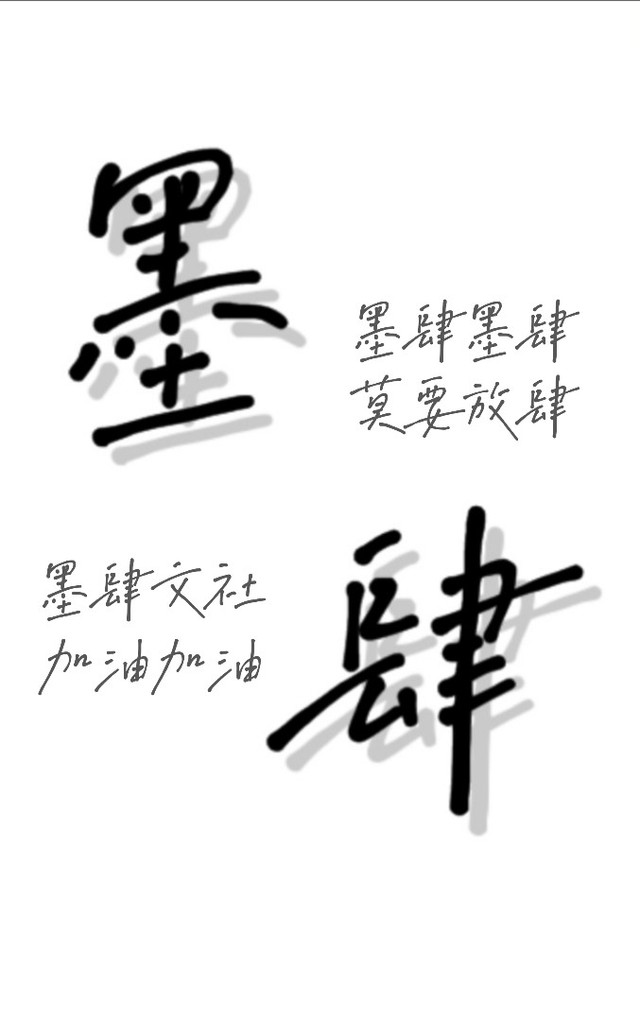 墨
墨肆墨肆
莫要放肆
墨肆文社
加油加油
肆